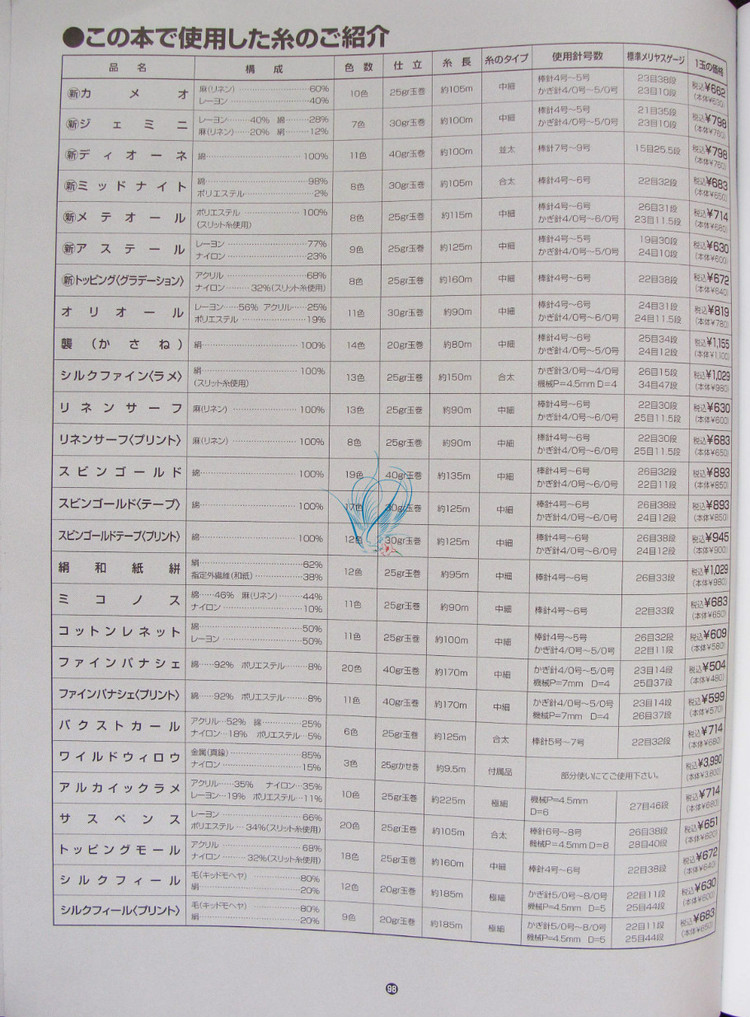 ●この本で使用した糸のご紹介
品名 構成 色数 仕立 糸長 糸のタイプ 使用針号数 標準メリヤスゲージ 1玉の価格
新カメオ 麻(リネン)……60% 10色 25gr玉巻 約105m 中細 棒針4号〜5号 23目38段 税込¥662
レーヨン……40% かぎ針4/0号〜5/0号 23目10段 (本体¥630)
新ジェミニ レーヨン……40% 綿……28% 7色 30gr玉巻 約100m 中細 棒針4号〜5号 21目35段 税込¥798
麻(リネン)……20% 絹……12% かぎ針4/0号〜5/0号 23目10段 (本体¥760)
新ディオーネ 綿……100% 11色 40gr玉巻 約100m 並太 棒針7号〜9号 15目25.5段 税込¥798
(本体¥760)
新ミッドナイト 綿……98% 8色 30gr玉巻 約105m 合太 棒針4号〜6号 22目32段 税込¥683
ポリエステル……2% (本体¥650)
新メテオール ポリエステル……100% 8色 25gr玉巻 約115m 中細 棒針4号〜6号 26目31段 税込¥714
(スリット糸使用) かぎ針4/0号〜6/0号 23目11.5段 (本体¥680)
新アステール レーヨン……77% 9色 25gr玉巻 約125m 中細 棒針4号〜5号 19目30段 税込¥630
ナイロン……23% かぎ針4/0号〜6/0号 24目10段 (本体¥600)
新トッピング〈グラデーション〉 アクリル……68% 8色 25gr玉巻 約160m 中細 棒針4号〜6号 22目38段 税込¥672
ナイロン……32%(スリット糸使用) (本体¥640)
オリオール レーヨン……56% アクリル……25% 11色 30gr玉巻 約90m 中細 棒針4号〜6号 24目31段 税込¥819
ポリエステル……19% かぎ針4/0号〜6/0号 24目11.5段 (本体¥780)
襲(かさね) 絹……100% 14色 20gr玉巻 約80m 中細 棒針4号〜6号 25目34段 税込¥1,155
かぎ針4/0号〜5/0号 24目12段 (本体¥1,100)
シルクファイン〈ラメ〉 絹……100% 13色 25gr玉巻 約150m 合太 かぎ針3/0号〜4/0号 26目15段 税込¥1,029
(スリット糸使用) 機械P=4.5mm D=4 34目47段 (本体¥980)
リネンサーフ 麻(リネン)……100% 13色 25gr玉巻 約90m 中細 棒針4号〜6号 22目30段 税込¥630
かぎ針4/0号〜6/0号 25目11.5段 (本体¥600)
リネンサーフ〈プリント〉 麻(リネン)……100% 8色 25gr玉巻 約90m 中細 棒針4号〜6号 22目30段 税込¥683
かぎ針4/0号〜6/0号 25目11.5段 (本体¥650)
スピンゴールド 綿……100% 19色 40gr玉巻 約135m 中細 棒針4号〜6号 26目32段 税込¥893
かぎ針4/0号〜6/0号 22目11段 (本体¥850)
スピンゴールド〈テープ〉 綿……100% 17色 30gr玉巻 約125m 中細 棒針4号〜6号 26目38段 税込¥893
かぎ針4/0号〜6/0号 24目12段 (本体¥850)
スピンゴールドテープ〈プリント〉 綿……100% 12色 30gr玉巻 約125m 中細 棒針4号〜6号 26目38段 税込¥945
かぎ針4/0号〜6/0号 24目12段 (本体¥900)
絹和紙絣 絹……62% 12色 25gr玉巻 約95m 中細 棒針4号〜6号 26目33段 税込¥1,029
指定外繊維(和紙)……38% (本体¥980)
ミコノス 綿……46% 麻(リネン)……44% 11色 25gr玉巻 約90m 中細 棒針4号〜6号 22目33段 税込¥683
ナイロン……10% (本体¥650)
コットンレネット 綿……50% 11色 25gr玉巻 約100m 中細 棒針4号〜5号 26目32段 税込¥609
レーヨン……50% かぎ針4/0号〜5/0号 22目11段 (本体¥580)
ファインバナシェ 綿……92% ポリエステル……8% 20色 40gr玉巻 約170m 中細 かぎ針4/0号〜5/0号 23目14段 税込¥504
機械P=7mm D=4 25目37段 (本体¥480)
ファインバナシェ〈プリント〉 綿……92% ポリエステル……8% 11色 40gr玉巻 約170m 中細 かぎ針4/0号〜5/0号 23目14段 税込¥599
機械P=7mm D=4 26目37段 (本体¥570)
バクストカール アクリル……52% 綿……25% 6色 25gr玉巻 約125m 合太 棒針5号〜7号 22目32段 税込¥714
ナイロン……18% ポリエステル……5% (本体¥680)
ワイルドウィロウ 金属(真鍮)……85% 3色 25grかせ巻 約9.5m 付属品 部分使いにてご使用下さい。 税込¥3,990
ナイロン……15% (本体¥3,800)
アルカイックラメ アクリル……35% ナイロン……35% 10色 25gr玉巻 約225m 極細 機械P=4.5mm 27目46段 税込¥714
レーヨン……19% ポリエステル……11% D=6 (本体¥680)
サスペンス レーヨン……66% 20色 25gr玉巻 約105m 合太 棒針6号〜8号 26目38段 税込¥651
ポリエステル……34%(スリット糸使用) 機械P=4.5mm D=8 28目40段 (本体¥620)
トッピングモール アクリル……68% 18色 25gr玉巻 約160m 中細 棒針4号〜6号 22目38段 税込¥672
ナイロン……32%(スリット糸使用) (本体¥640)
シルクフィール 毛(キッドモヘヤ)……80% 12色 20gr玉巻 約185m 極細 かぎ針5/0号〜8/0号 22目11段 税込¥630
絹……20% 機械P=4.5mm D=5 25目44段 (本体¥600)
シルクフィール〈プリント〉 毛(キッドモヘヤ)……80% 9色 20gr玉巻 約185m 極細 かぎ針5/0号〜8/0号 22目11段 税込¥683
絹……20% 機械P=4.5mm D=5 25目44段 (本体¥650)
98